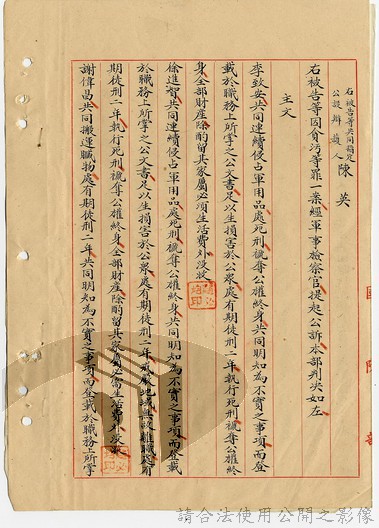 右被告等共同指定
公設辯護人 陳英
右被告等因貪污等罪一案經軍事檢察官提起公訴本部判決如左
主文
李致安共同連續侵占軍用品處死刑褫奪公權終身共同明知為不實之事項而登
載於職務上所掌之公文書足以生損害於公眾處有期徒刑二年執行死刑褫奪公權終
身全部財產除酌留其家屬必須生活費外沒收
徐進智共同連續侵占軍用品處死刑褫奪公權終身共同明知為不實之事項而登載
於職務上所掌之公文書足以生損害於公眾處有期徒刑二年 無故離職處有
期徒刑二年執行死刑褫奪公權終身全部財產除酌留其家屬必需生活費外沒收
謝偉昌共同搬運贓物處有期徒刑二年共同明知為不實之事項而登載於職務上所掌
國防部
請合法使用公開之影像